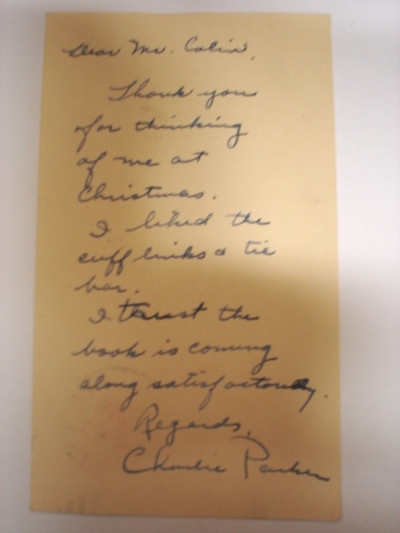 Dear Mr. Colin,
Thank you
for thinking
of me at
Christmas.
I liked the
cuff links & tie
bar.
I trust the
book is coming
along satisfactorily.
Regards,
Charlie Parker